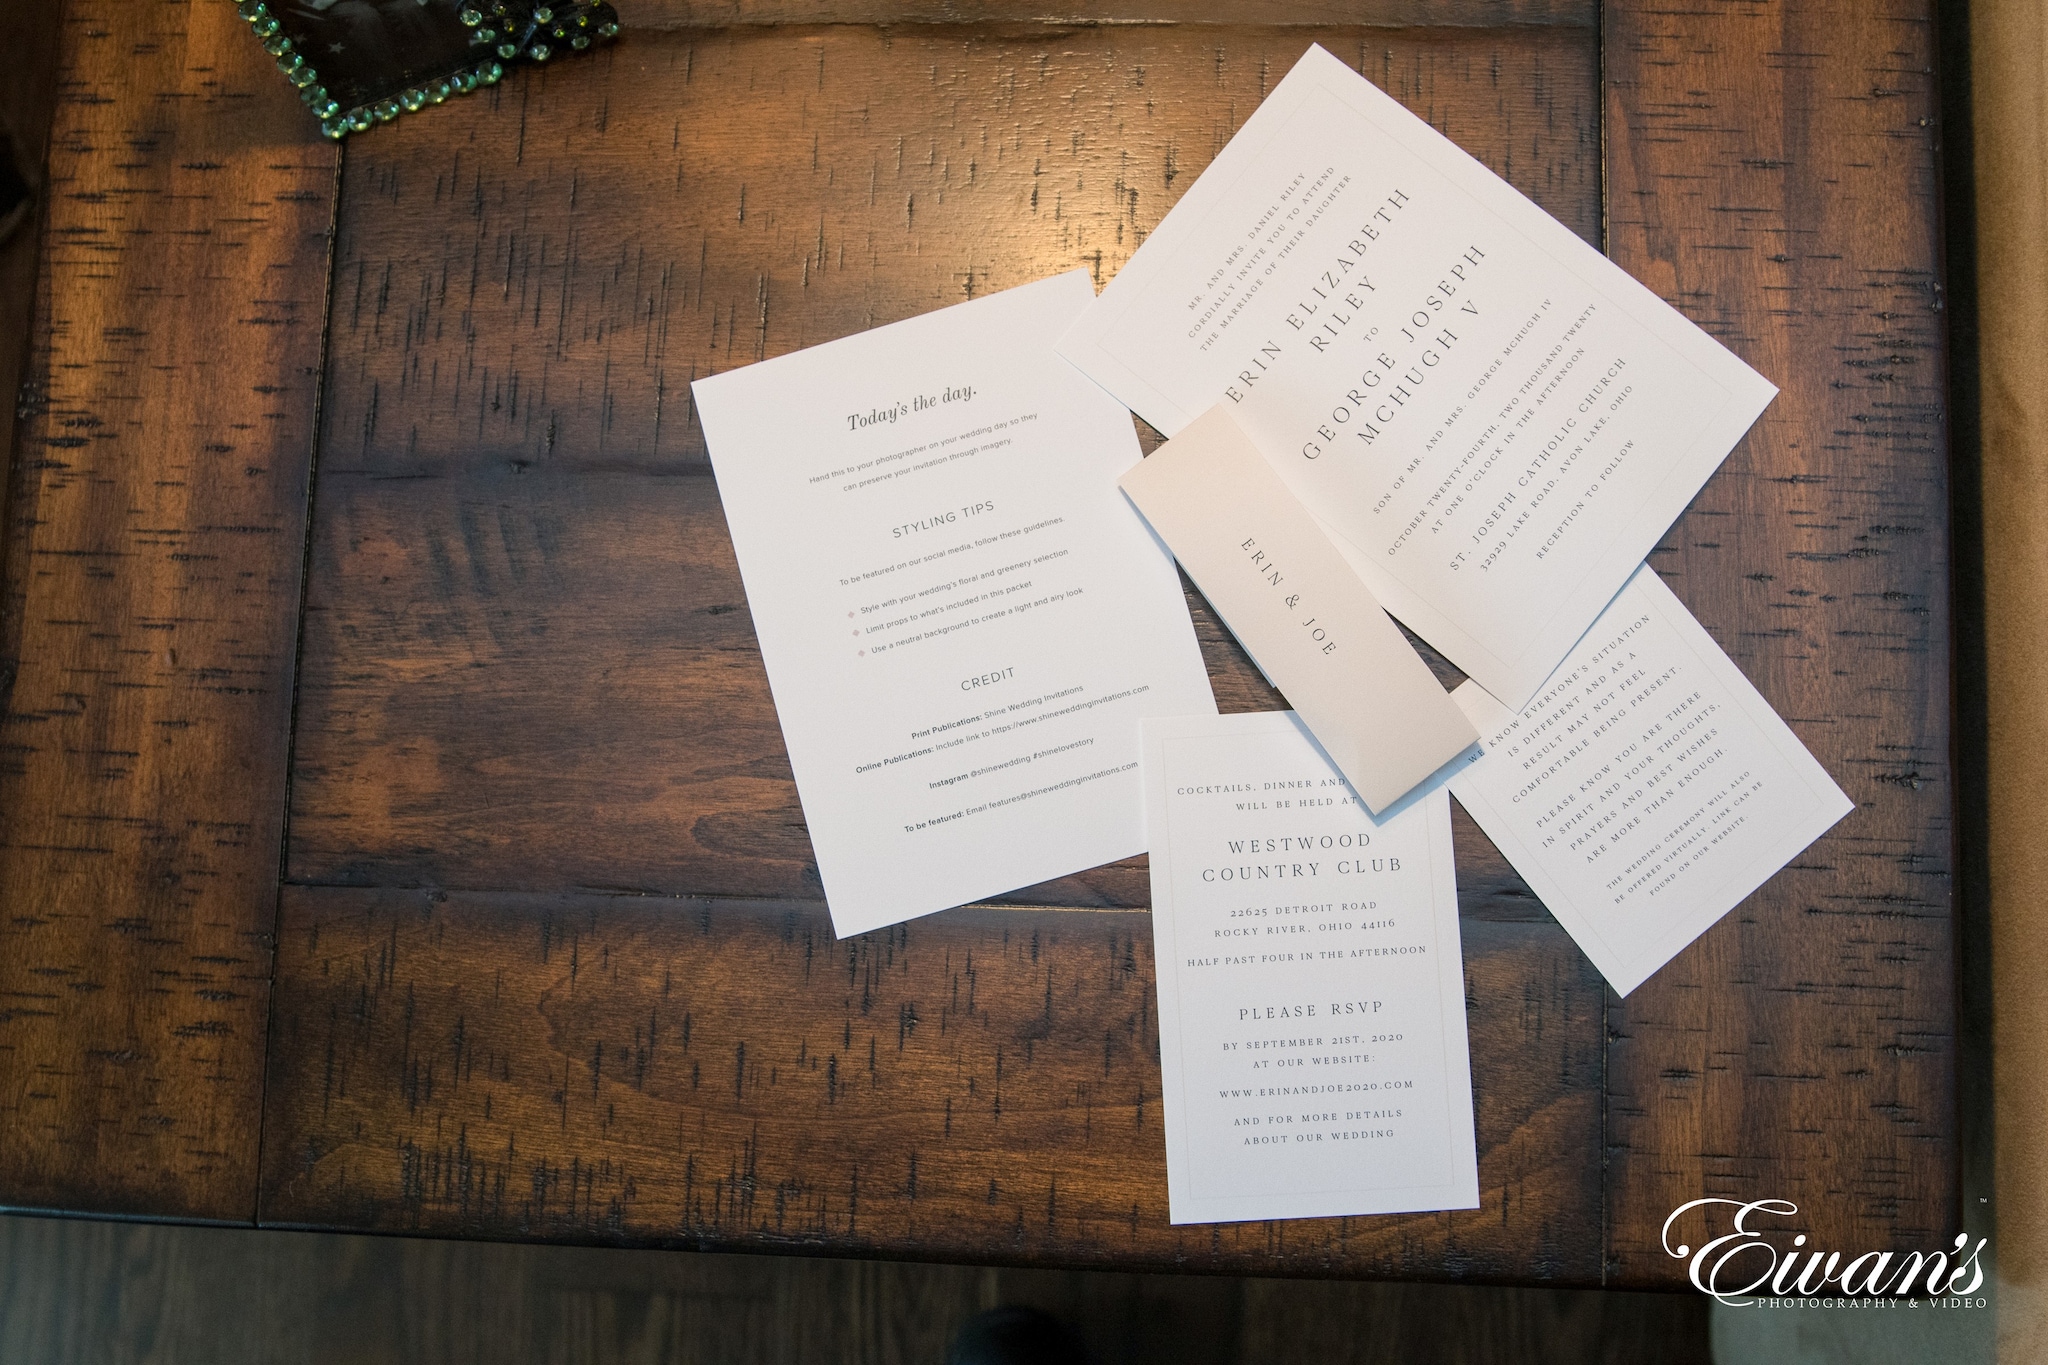 Today's the day.
Hand this to your photographer on your wedding day so they
can preserve your invitation through imagery.
STYLING TIPS
To be featured on our social media, follow these guidelines.
Style with your wedding's floral and greenery selection
Limit props to what's included in this packet
Use a neutral background to create a light and airy look
CREDIT
Print Publications: Shine Wedding Invitations
Online Publications: Include link to https://www.shineweddinginvitations.com
Instagram @shinewedding #shinelovestory
To be featured: Email features@shineweddinginvitations.com
MR. AND MRS. DANIEL RILEY
CORDIALLY INVITE YOU TO ATTEND
THE MARRIAGE OF THEIR DAUGHTER
ERIN ELIZABETH
RILEY
TO
GEORGE JOSEPH
MCHUGH V
SON OF MR. AND MRS. GEORGE MCHUGH IV
OCTOBER TWENTY-FOURTH, TWO THOUSAND TWENTY
AT ONE O'CLOCK IN THE AFTERNOON
ST. JOSEPH CATHOLIC CHURCH
32929 LAKE ROAD, AVON LAKE, OHIO
RECEPTION TO FOLLOW
ERIN & JOE
COCKTAILS, DINNER AND
WILL BE HELD AT
WESTWOOD
COUNTRY CLUB
22625 DETROIT ROAD
ROCKY RIVER, OHIO 44116
HALF PAST FOUR IN THE AFTERNOON
PLEASE RSVP
BY SEPTEMBER 21ST, 2020
AT OUR WEBSITE:
WWW.ERINANDJOE2020.COM
AND FOR MORE DETAILS
ABOUT OUR WEDDING
WE KNOW EVERYONE'S SITUATION
IS DIFFERENT AND AS A
RESULT MAY NOT FEEL
COMFORTABLE BEING PRESENT.
PLEASE KNOW YOU ARE THERE
IN SPIRIT AND YOUR THOUGHTS,
PRAYERS AND BEST WISHES
ARE MORE THAN ENOUGH.
THE WEDDING CEREMONY WILL ALSO
BE OFFERED VIRTUALLY. LINK CAN BE
FOUND ON OUR WEBSITE.
Eivan's™
PHOTOGRAPHY & VIDEO